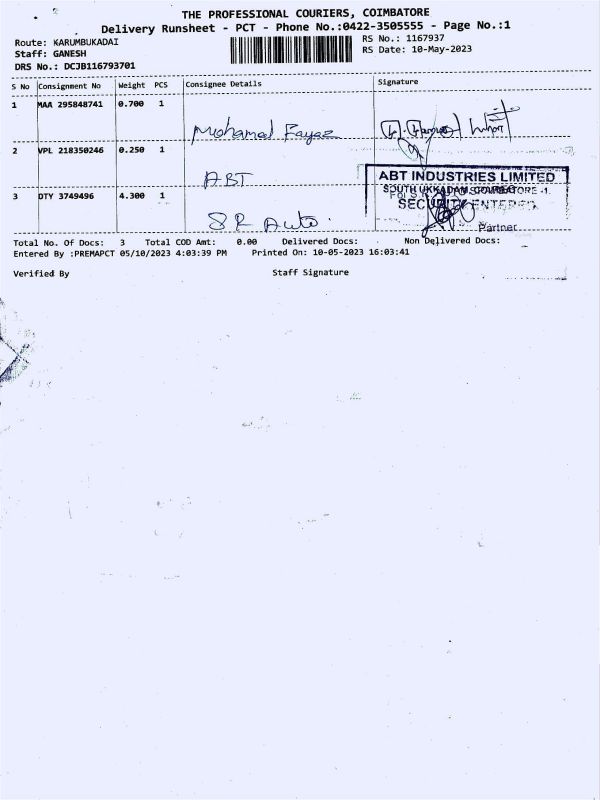 THE PROFESSIONAL COURIERS, COIMBATORE
Delivery Runsheet - PCT - Phone No.:0422-3505555 - Page No.:1
Route: KARUMBUKADAI
RS No.: 1167937
Staff: GANESH
RS Date: 10-May-2023
DRS No.: DCJB116793701
S No Consignment No Weight PCS Consignee Details Signature
1 MAA 295848741 0.700 1
Mohamed Fayaz
2 VPL 218350246 0.250 1
ABT
ABT INDUSTRIES LIMITED
SOUTH UKKADAM, COIMBATORE -1.
3 DTY 3749496 4.300 1
SECURITY
SR Auto
Partner
Total No. Of Docs: 3 Total COD Amt: 0.00 Delivered Docs: Non Delivered Docs:
Entered By :PREMAPCT 05/10/2023 4:03:39 PM Printed On: 10-05-2023 16:03:41
Verified By Staff Signature